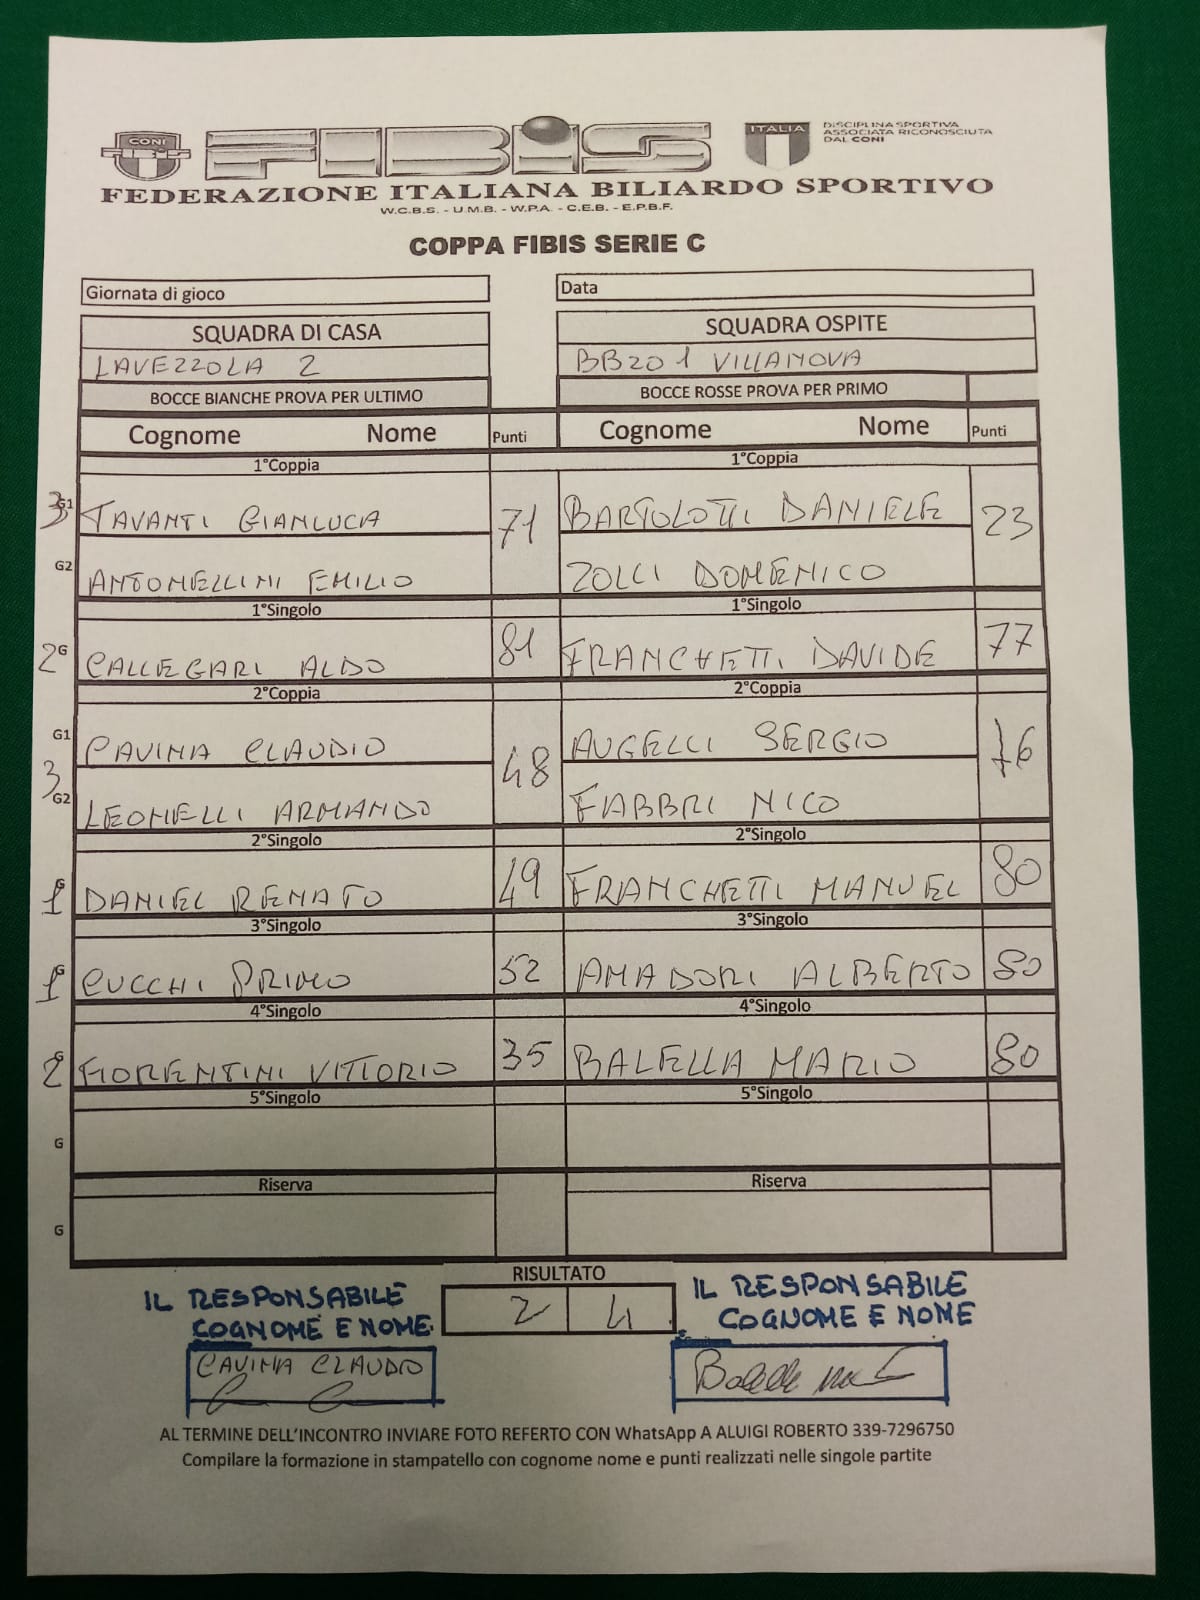 CONI
FIBIS
ITALIA
DISCIPLINA SPORTIVA
ASSOCIATA RICONOSCIUTA
DAL CONI
FEDERAZIONE ITALIANA BILIARDO SPORTIVO
W.C.B.S. - U.M.B. - W.P.A. - C.E.B. - E.P.B.F.
COPPA FIBIS SERIE C
Giornata di gioco
Data
SQUADRA DI CASA
SQUADRA OSPITE
LAVEZZOLA 2
BB201 VILLANOVA
BOCCE BIANCHE PROVA PER ULTIMO
BOCCE ROSSE PROVA PER PRIMO
Cognome Nome Punti Cognome Nome Punti
1°Coppia 1°Coppia
3 G1 TAVANTI GIANLUCA 71 BARTOLOTTI DANIELE 23
G2 ANTONELLINI EMILIO ZOLLI DOMENICO
1°Singolo 1°Singolo
2 G CALLEGARI ALDO 81 FRANCHETTI DAVIDE 77
2°Coppia 2°Coppia
G1 CAVINA CLAUDIO 48 AUGELLI SERGIO 76
3
G2 LEONELLI ARMANDO FABBRI NICO
2°Singolo 2°Singolo
1 G DANIEL RENATO 49 FRANCHETTI MANUEL 80
3°Singolo 3°Singolo
1 G CUCCHI PRIMO 52 AMADORI ALBERTO 80
4°Singolo 4°Singolo
2 G FIORENTINI VITTORIO 35 BALELLA MARIO 80
5°Singolo 5°Singolo
G
Riserva Riserva
G
RISULTATO
2 4
IL RESPONSABILE
COGNOME E NOME
IL RESPONSABILE
COGNOME E NOME
CAVINA CLAUDIO
AL TERMINE DELL'INCONTRO INVIARE FOTO REFERTO CON WhatsApp A ALUIGI ROBERTO 339-7296750
Compilare la formazione in stampatello con cognome nome e punti realizzati nelle singole partite